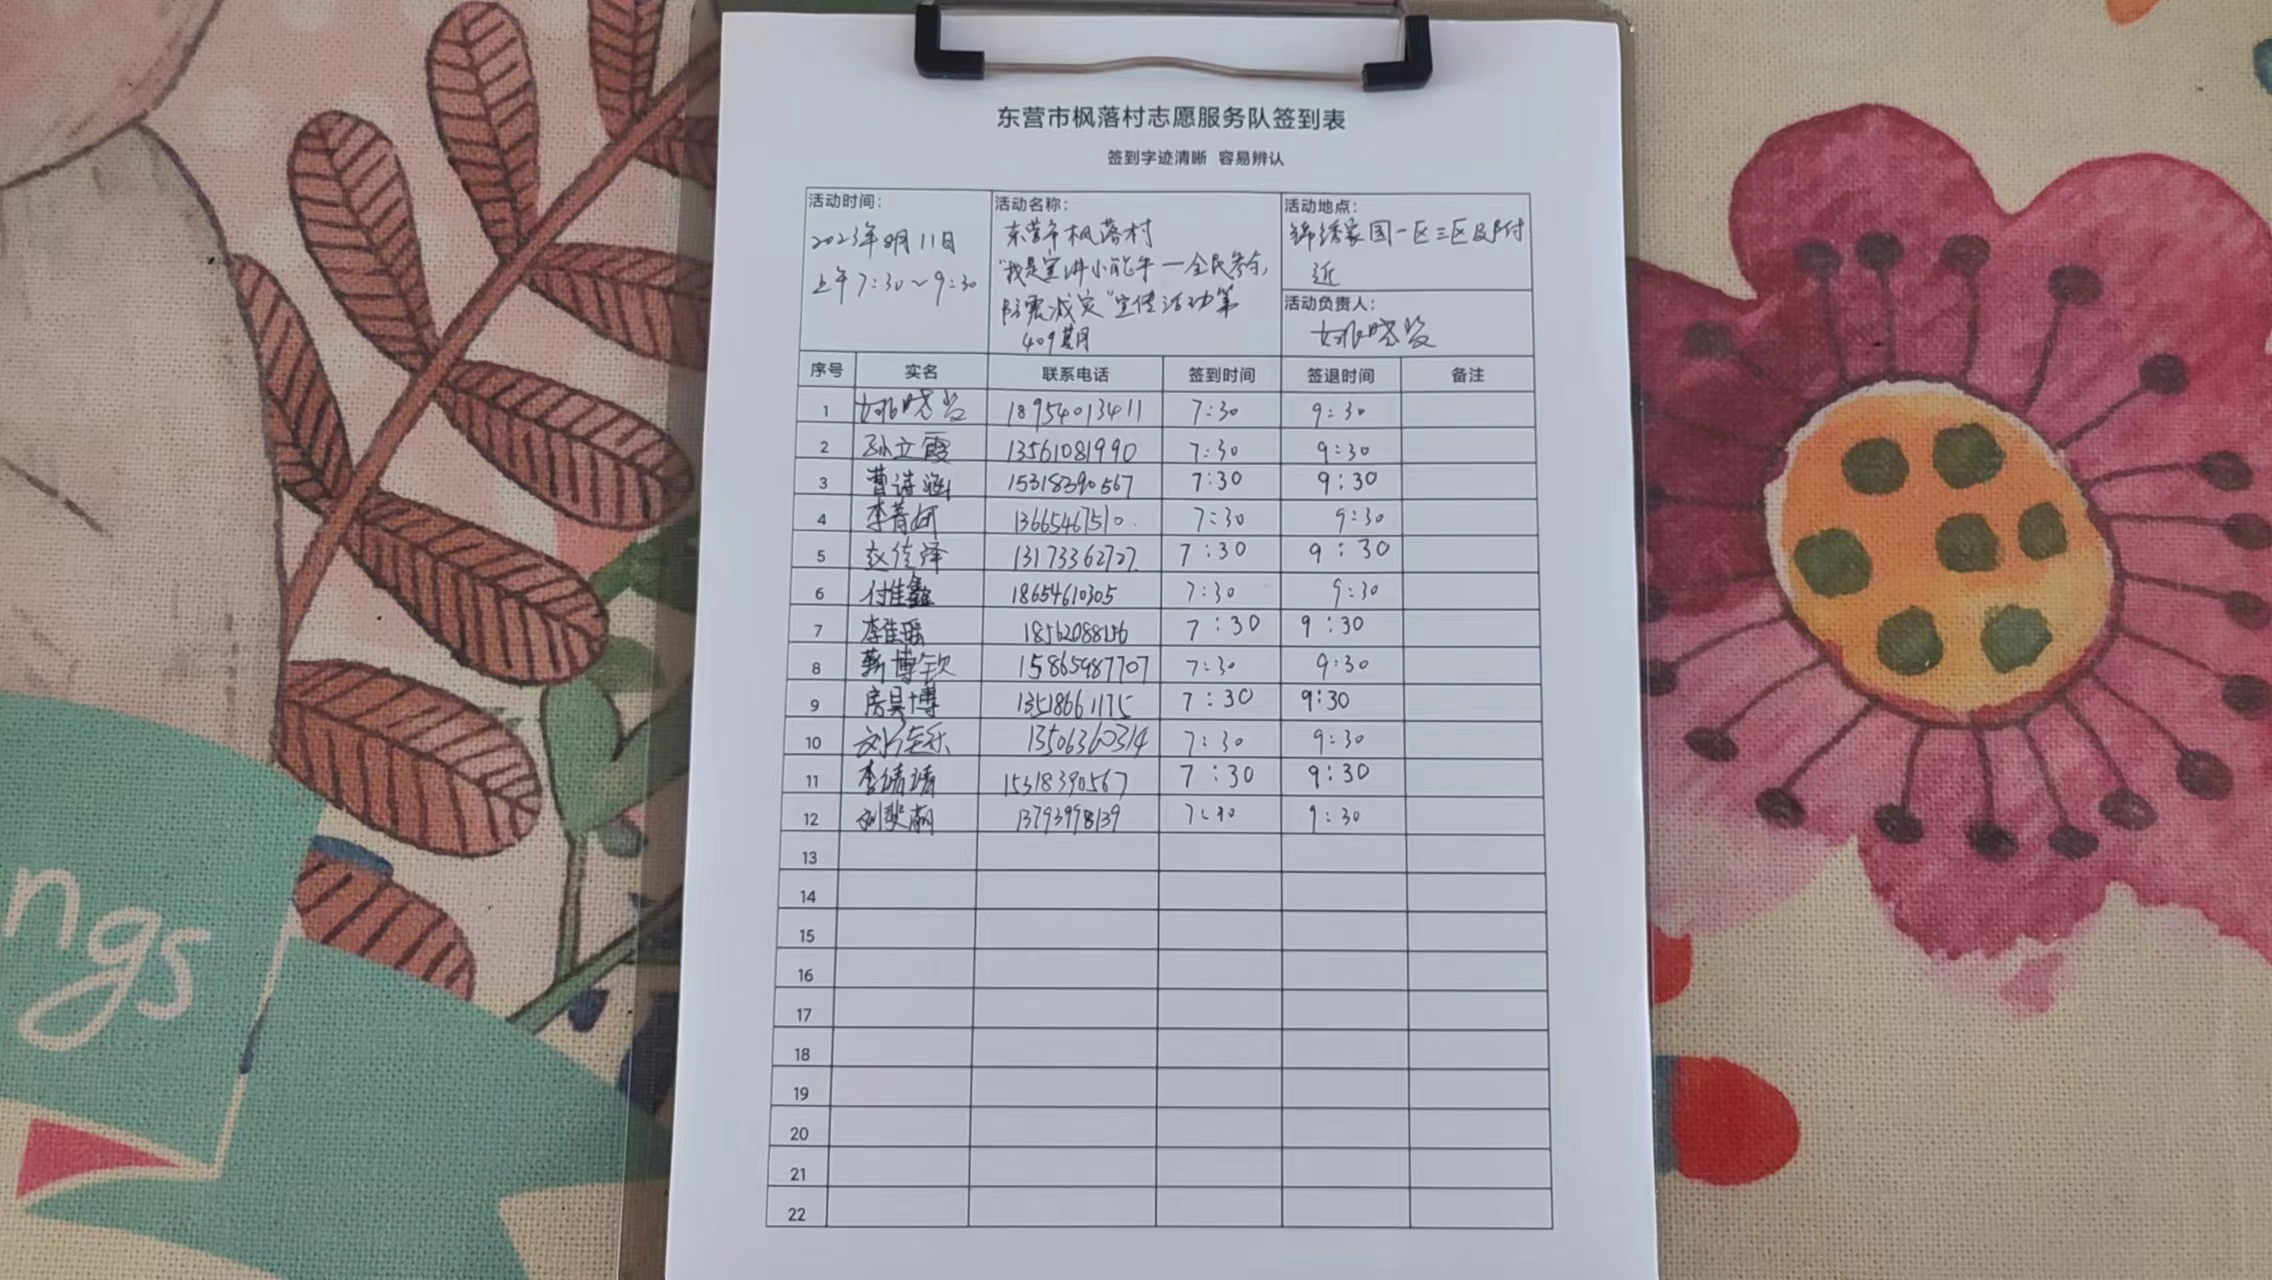 东营市枫落村志愿服务队签到表
签到字迹清晰 容易辨认
活动时间：
2023年8月11日
上午7:30～9:30
活动名称：
东营市枫落村
“我是宣讲小能手—全民参与，
防震减灾”宣传活动第
409期
活动地点：
锦绣家园一区三区及附
近
活动负责人：
姚晓
序号 实名 联系电话 签到时间 签退时间 备注
1 姚晓 18954013411 7:30 9:30
2 孙立霞 13561081990 7:30 9:30
3 曹诗涵 15318390567 7:30 9:30
4 李菁妍 13665467510 7:30 9:30
5 赵佳泽 13173362727 7:30 9:30
6 付佳鑫 18654610305 7:30 9:30
7 李佳瑶 18562088156 7:30 9:30
8 靳博钦 15865987707 7:30 9:30
9 房昊博 13518661175 7:30 9:30
10 刘佳乐 13506360314 7:30 9:30
11 李靖靖 15318390567 7:30 9:30
12 刘斐 13793998139 7:30 9:30
13
14
15
16
17
18
19
20
21
22
ngs